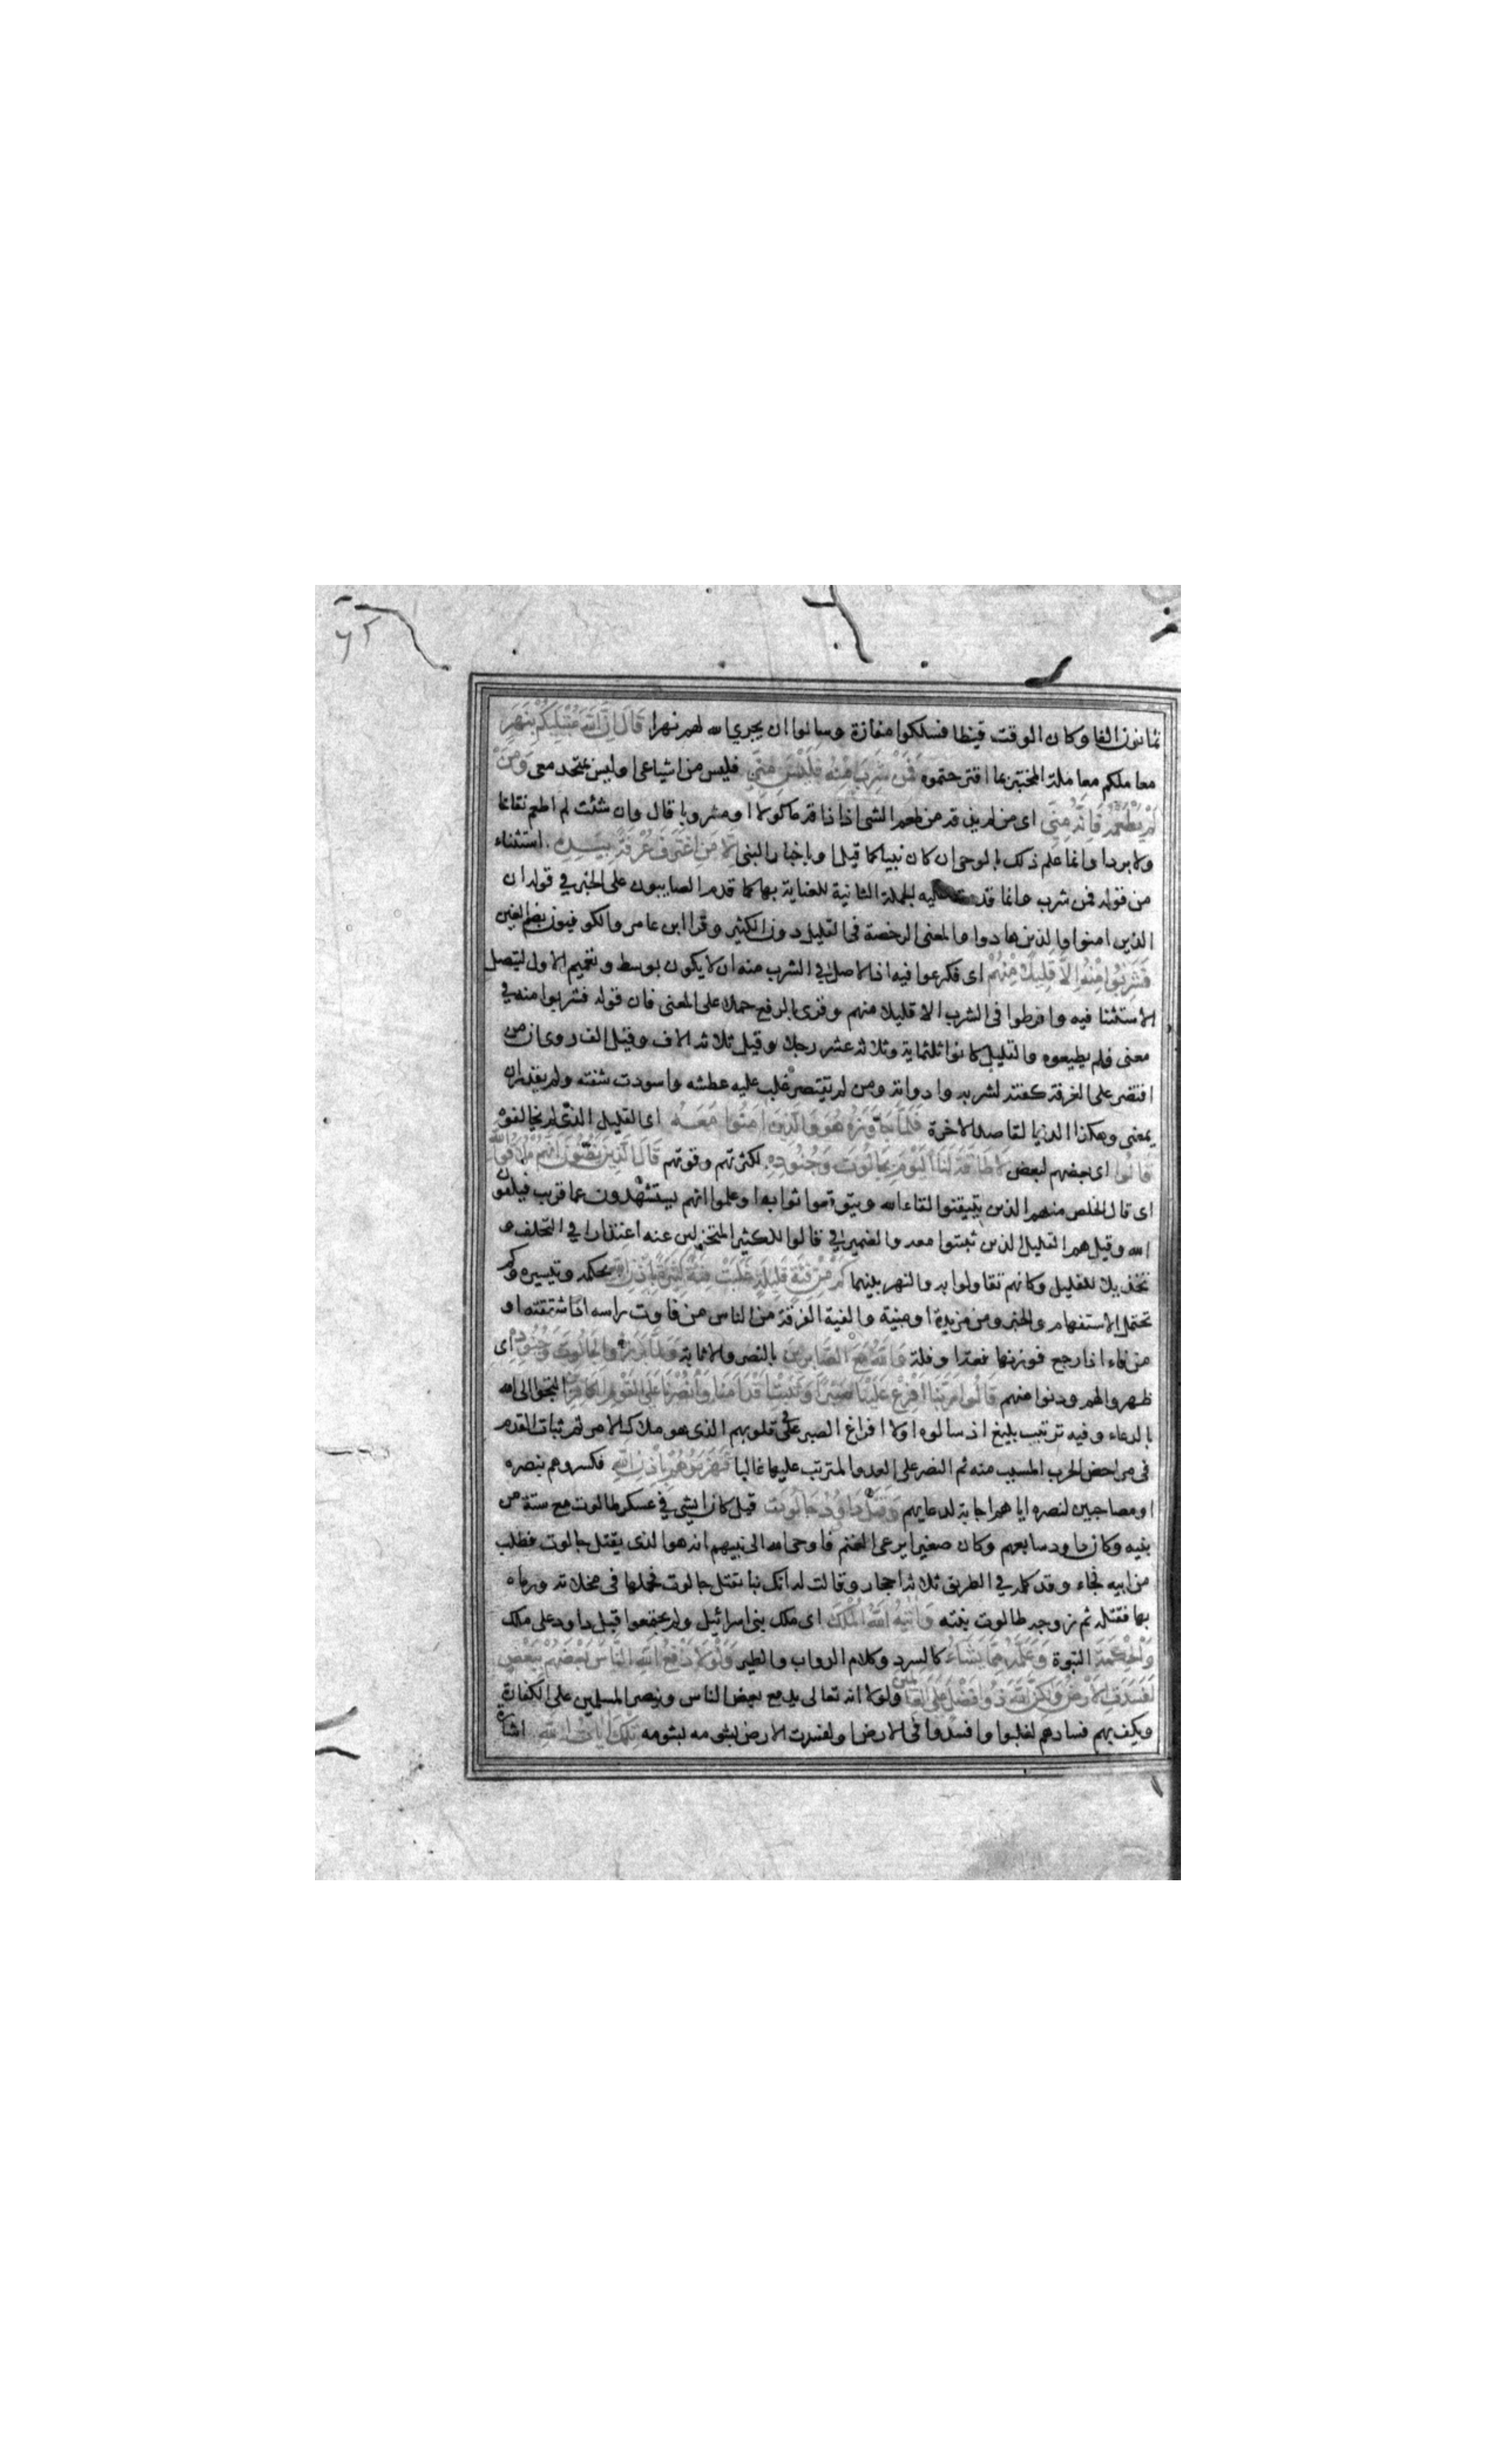 ٦٢
ثمانون الفا وكان الوقت قيظا فسلكوا مفازة وسالوا ان يجري الله لهم نهرا قَالَ اِنَّ اللّٰهَ مُبْتَلِيكُمْ بِنَهَرٍ
معاملكم معاملة المختبر بما اقترحتموه فَمَنْ شَرِبَ مِنْهُ فَلَيْسَ مِنِّي فليس من اشياعى اوليس بمتحد معى وَمَنْ
لَمْ يَطْعَمْهُ فَاِنَّهُ مِنِّي اى من لم يذقه من طعم الشئ اذا ذاقه ماكولا او مشروبا قال وان شئت لم اطعم نقاخا
ولا بردا وانما علم ذلك بالوحى ان كان نبيا كما قيل او باخبار النبى اِلَّا مَنِ اغْتَرَفَ غُرْفَةً بِيَدِهِ استثناء
من قوله فمن شرب وانما قدمت عليه الجملة الثانية للعناية بها كما قدم الصابيون على الخبر في قوله ان
الذين امنوا والذين هادوا والمعنى الرخصة فى القليل دون الكثير وقرا ابن عامر والكوفيون بضم الغين
فَشَرِبُوا مِنْهُ اِلَّا قَلِيلًا مِنْهُمْ اى فكرعوا فيه اذ الاصل في الشرب منه ان لا يكون بوسط وتعميم الاول ليتصل
الاستثنا فيه وافرطوا فى الشرب الا قليلا منهم وقرى بالرفع حملا على المعنى فان قوله فشربوا منه في
معنى فلم يطيعوه والقليل كانوا ثلثماية وثلاثه عشر رجلا وقيل ثلاثه الاف وقيل الف روى ان من
اقتصر على الغرفة كفته لشربه وادواته ومن لم يقتصر غلب عليه عطشه واسودت شفته ولم يقدر ان
يمضى وهكذا الدنيا لقاصد الاخرة فَلَمَّا جَاوَزَهُ هُوَ وَالَّذِينَ اٰمَنُوا مَعَهُ اى القليل الذى لم يخالفوه
قَالُوا اى بعضهم لبعض لَا طَاقَةَ لَنَا الْيَوْمَ بِجَالُوتَ وَجُنُودِهِ لكثرتهم وقوتهم قَالَ الَّذِينَ يَظُنُّونَ اَنَّهُمْ مُلَاقُوا اللّٰهِ
اى قال الخلص منهم الذين يتيقنوا لقاء الله ويتوقعوا ثوابه او علموا انهم يستشهدون عما قريب فيلقون
الله وقيل هم القليل الذين ثبتوا معه والضمير في قالوا للكثير المنخزلين عنه اعتذارا في التخلف و
تخذيلا للقليل وكانهم تقاولوا به والنهر بينهما كَمْ مِنْ فِئَةٍ قَلِيلَةٍ غَلَبَتْ فِئَةً كَثِيرَةً بِاِذْنِ اللّٰهِ بحكمه وتيسيره وكم
تحتمل الاستفهام والخبر ومن مزيدة او مبنية والفية الفرقة من الناس من فاوت راسه اذا شققته او
من فاء اذا رجع فوزنها فعة او فلة وَاللّٰهُ مَعَ الصَّابِرِينَ بالنصر والاثابة وَلَمَّا بَرَزُوا لِجَالُوتَ وَجُنُودِهِ اى
ظهروا لهم ودنوا منهم قَالُوا رَبَّنَا اَفْرِغْ عَلَيْنَا صَبْرًا وَثَبِّتْ اَقْدَامَنَا وَانْصُرْنَا عَلَى الْقَوْمِ الْكَافِرِينَ التجوا الى الله
بالدعاء وفيه ترتيب بليغ اذ سالوه اولا افراغ الصبر على فى قلوبهم الذى هو ملاك الامر ثم ثبات القدم
فى مداحض الحرب المسبب منه ثم النصر على العدو المترتب عليهما غالبا فَهَزَمُوهُمْ بِاِذْنِ اللّٰهِ فكسروهم بنصره
او مصاحبين لنصره اياهم اجابة لدعايهم وَقَتَلَ دَاوُدُ جَالُوتَ قيل كان ايشى في عسكر طالوت مع ستة من
بنيه وكان داود سابعهم وكان صغيرا يرعى الغنم فاوحى الله الى نبيهم انه هو الذى يقتل جالوت فطلب
من ابيه فجاء وقد كلمه في الطريق ثلاثه احجار وقالت له انك بنا تقتل جالوت فحملها فى مخلاته ورماه
بها فقتله ثم زوجه طالوت بنته وَاٰتٰيهُ اللّٰهُ الْمُلْكَ اى ملك بنى اسرائيل ولم يجتمعوا قبل داود على ملك
وَالْحِكْمَةَ النبوة وَعَلَّمَهُ مِمَّا يَشَاءُ كالسرد وكلام الدواب والطير وَلَوْلَا دَفْعُ اللّٰهِ النَّاسَ بَعْضَهُمْ بِبَعْضٍ
لَفَسَدَتِ الْاَرْضُ وَلٰكِنَّ اللّٰهَ ذُو فَضْلٍ عَلَى الْعَالَمِينَ ولولا انه تعالى يدفع بعض الناس وينصر المسلمين على الكفار
ويكف بهم فسادهم لغلبوا وافسدوا فى الارض او لفسدت الارض بشومه تِلْكَ اٰيَاتُ اللّٰهِ اشارة